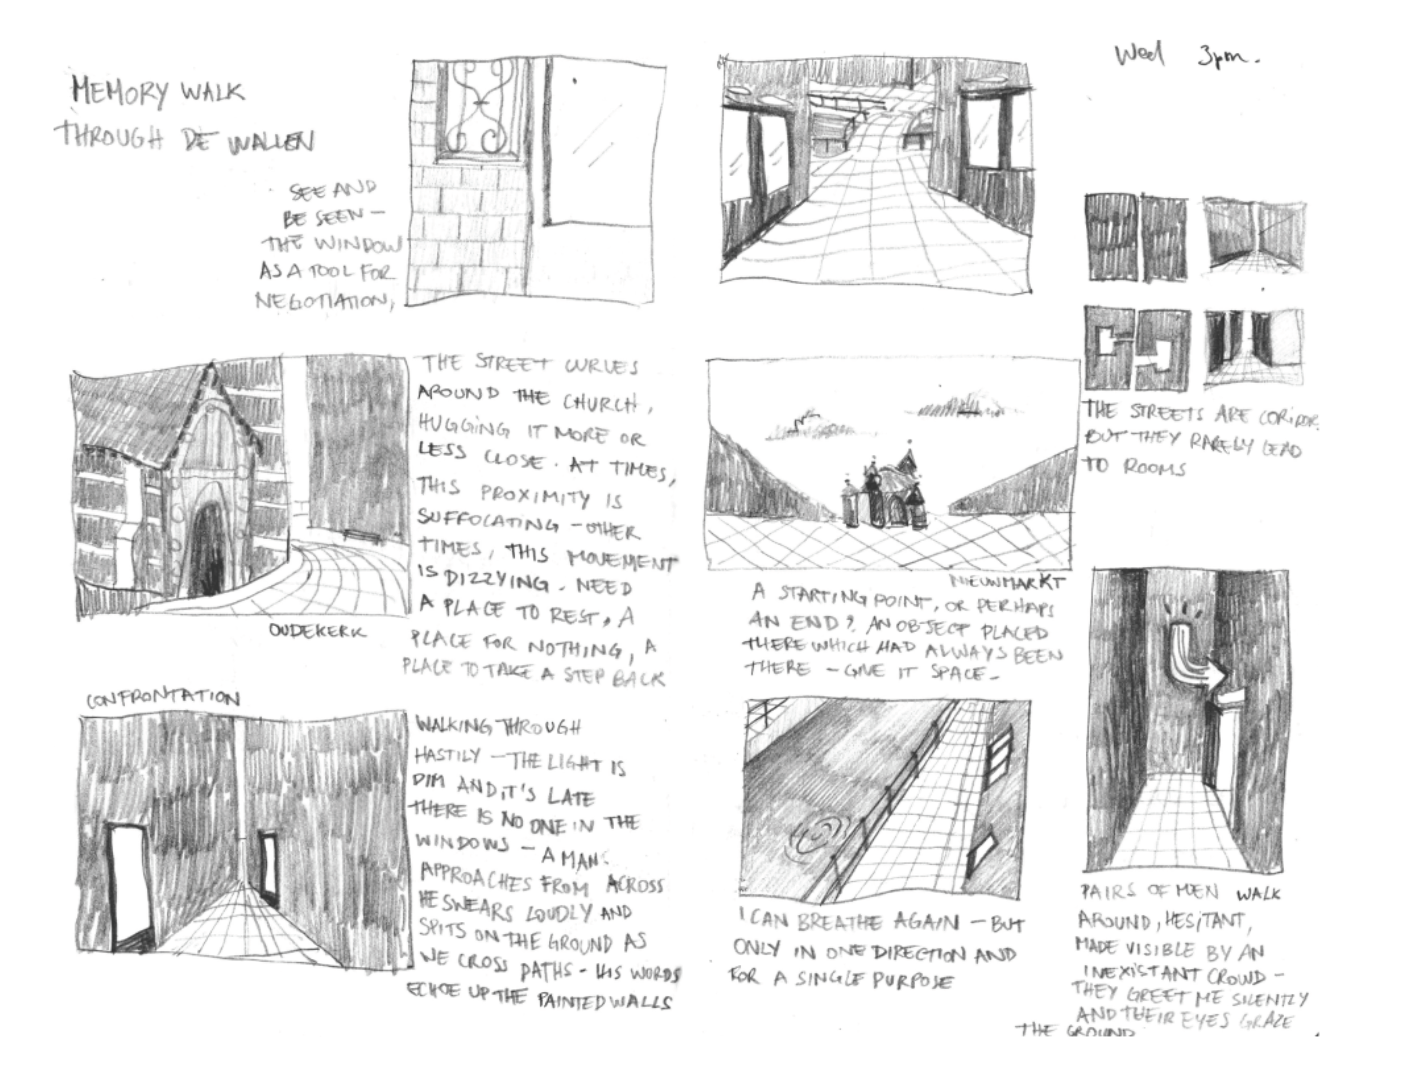 MEMORY WALK
THROUGH DE WALLEN
Wed 3pm.
SEE AND
BE SEEN –
THE WINDOW
AS A TOOL FOR
NEGOTIATION,
THE STREET CURVES
AROUND THE CHURCH,
HUGGING IT MORE OR
LESS CLOSE. AT TIMES,
THIS PROXIMITY IS
SUFFOCATING – OTHER
TIMES, THIS MOVEMENT
IS DIZZYING. NEED
A PLACE TO REST, A
PLACE FOR NOTHING, A
PLACE TO TAKE A STEP BACK
OUDEKERK
THE STREETS ARE CORIDOR.
BUT THEY RARELY LEAD
TO ROOMS
NIEUWMARKT
A STARTING POINT, OR PERHAPS
AN END? AN OBJECT PLACED
THERE WHICH HAD ALWAYS BEEN
THERE – GIVE IT SPACE –
CONFRONTATION
WALKING THROUGH
HASTILY – THE LIGHT IS
DIM AND IT'S LATE
THERE IS NO ONE IN THE
WINDOWS – A MAN
APPROACHES FROM ACROSS
HE SWEARS LOUDLY AND
SPITS ON THE GROUND AS
WE CROSS PATHS – HIS WORDS
ECHOE UP THE PAINTED WALLS
I CAN BREATHE AGAIN – BUT
ONLY IN ONE DIRECTION AND
FOR A SINGLE PURPOSE
PAIRS OF MEN WALK
AROUND, HESITANT,
MADE VISIBLE BY AN
INEXISTANT CROWD –
THEY GREET ME SILENTLY
AND THEIR EYES GRAZE
THE GROUND